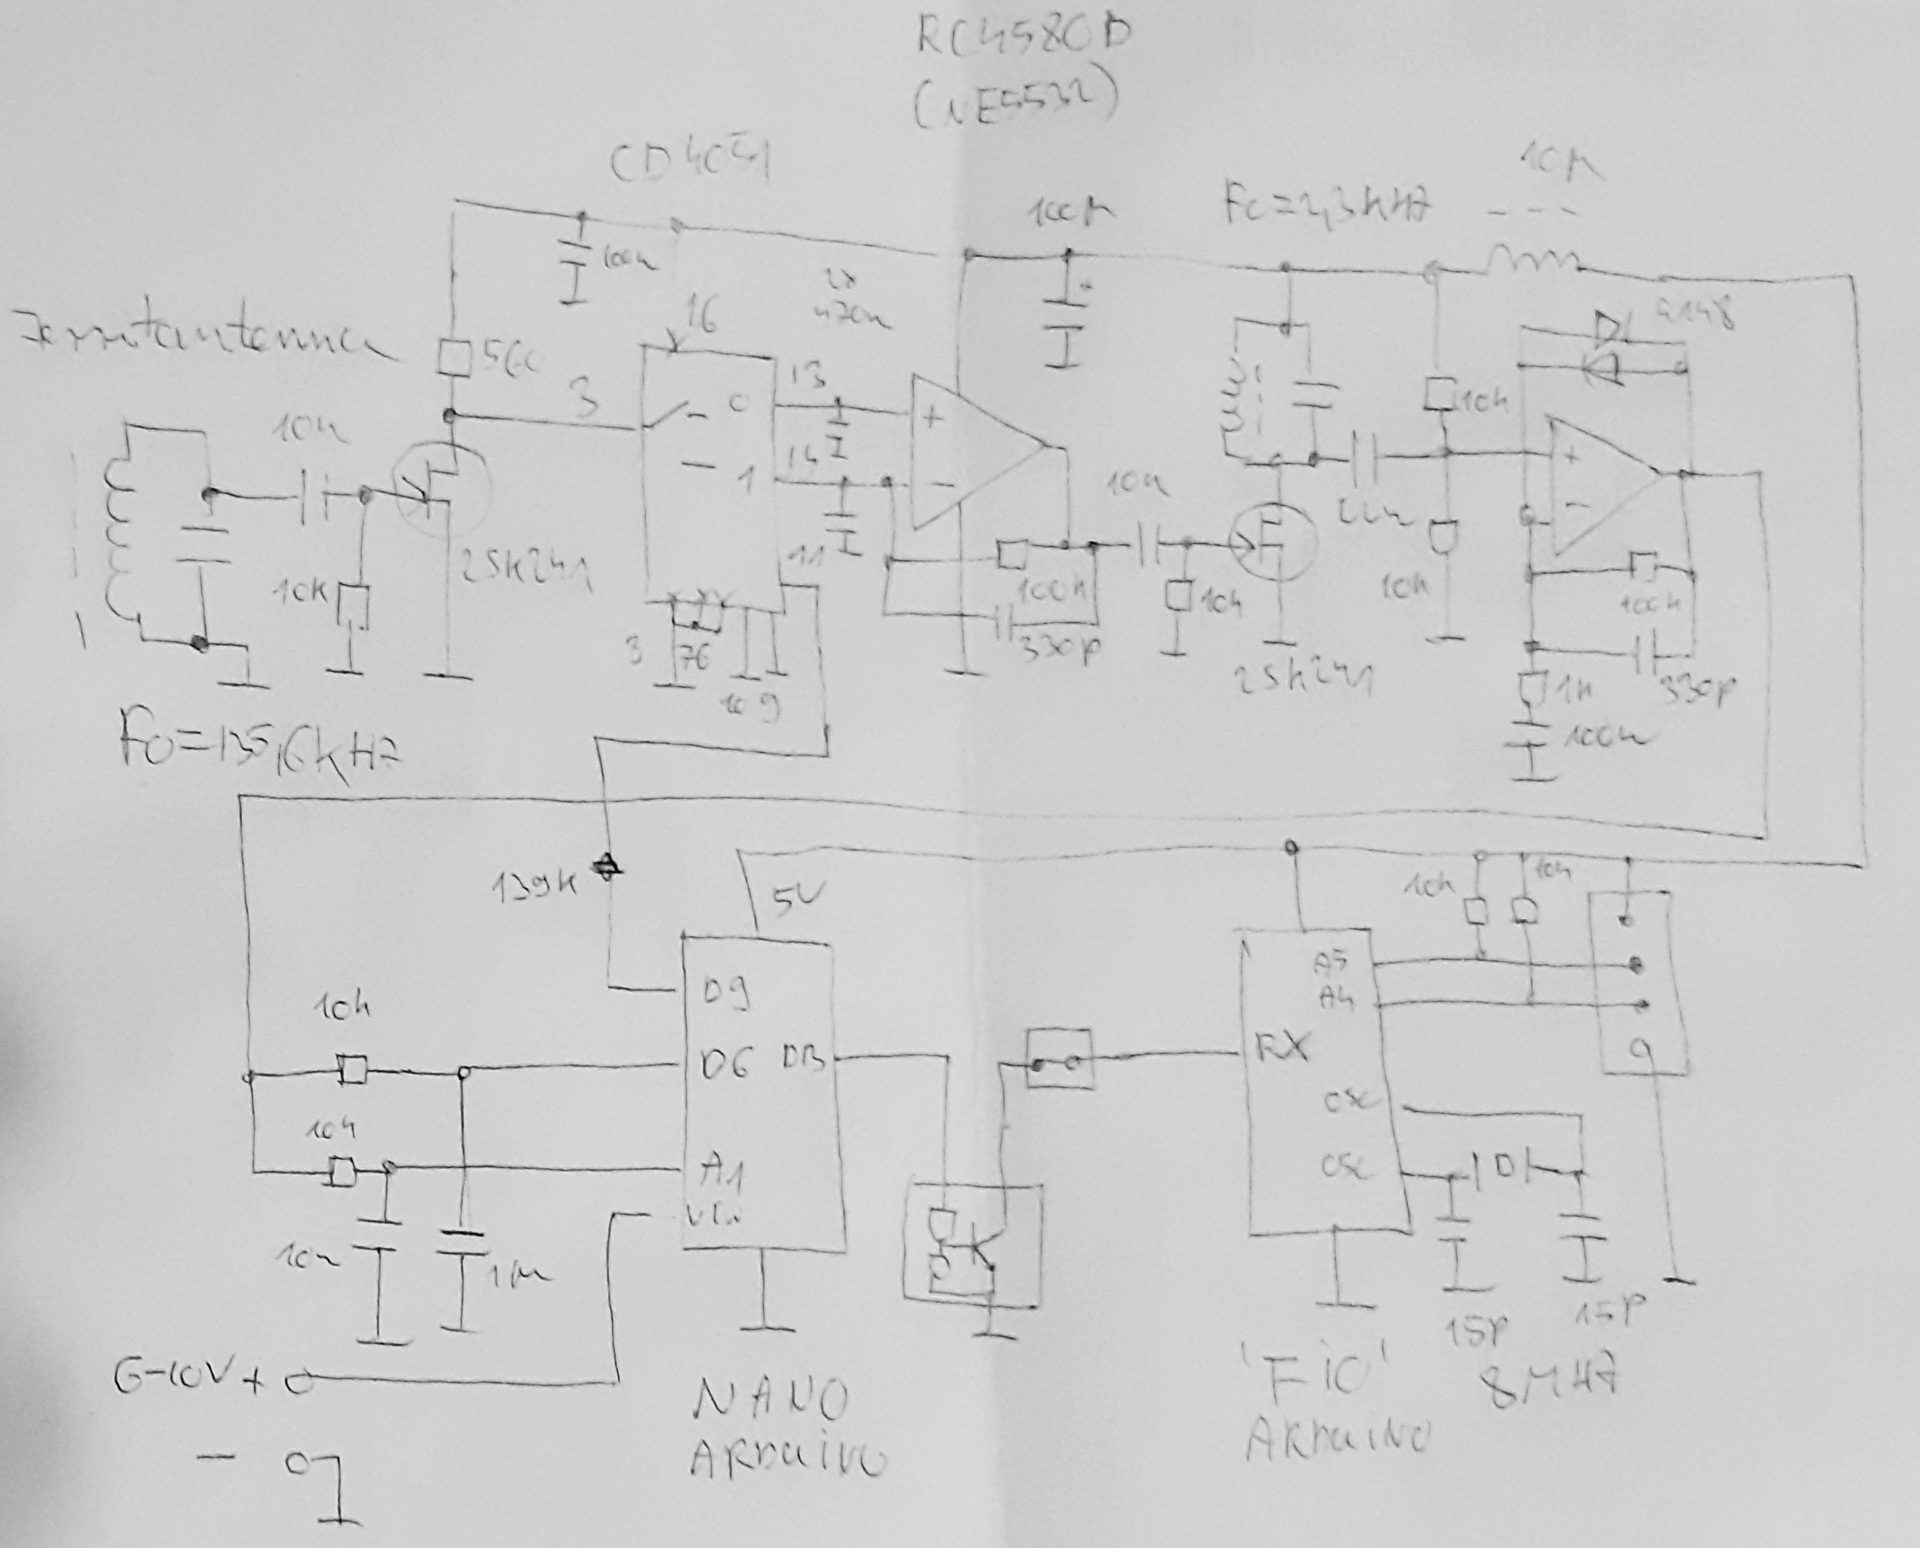 RC4580D
(NE5532)
CD4051
10µ
100µ
Fc=2,3kHz
100n
2x
470n
4148
16
Ferritantenna
560
13
3
0
+
10k
10n
14
1
-
+
10n
22n
-
11
2SK241
10K
100k
10k
10k
100k
3
76
330p
2SK241
1k
330p
10 9
100n
Fo=135,6kHz
139K
5V
10k
10k
D9
A5
A4
10k
D6
D13
RX
10k
osc
A1
osc
Vin
10n
1µ
15p
15p
6-10V +
'FIO'
8MHz
NANO
ARDUINO
ARDUINO
-